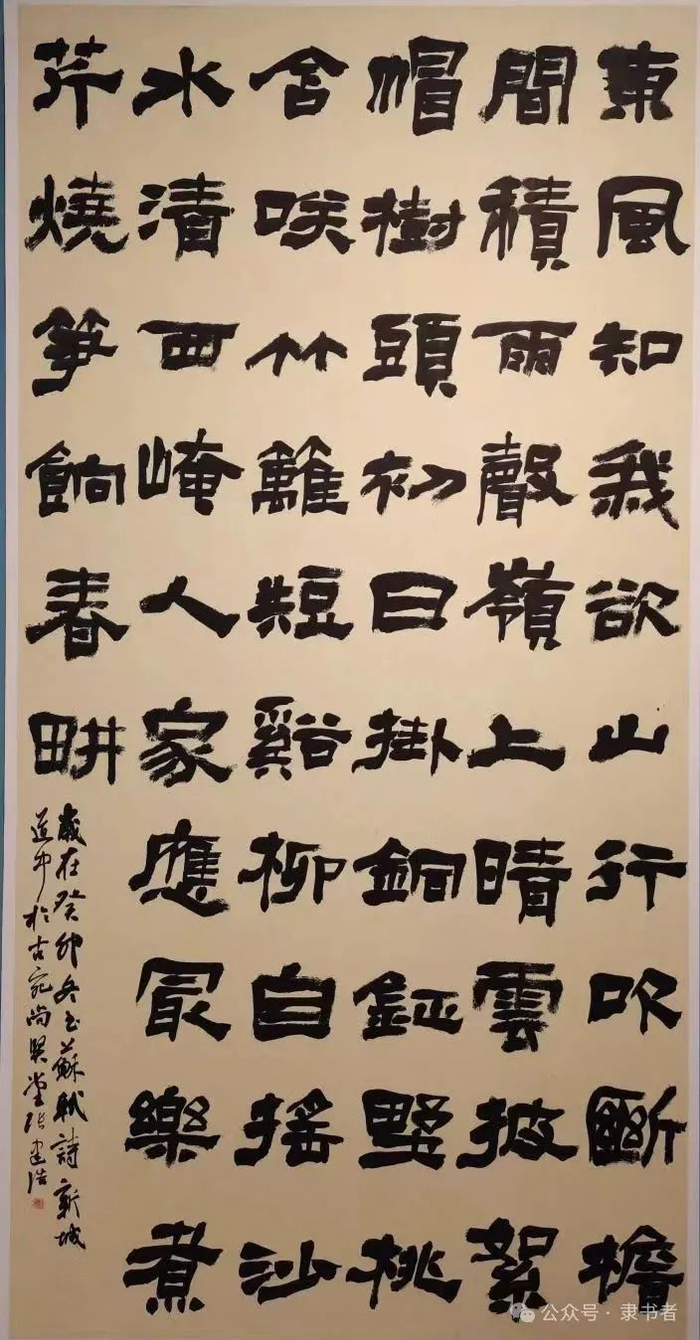 東風知我欲山行吹斷檐
間積雨聲嶺上晴雲披絮
帽樹頭初日掛銅鉦墅桃
含咲竹籬短谿柳自搖沙
水清西崦人家應冣樂煮
芹燒笋餉春畊
歲在癸卯冬書蘇軾詩新城
道中於古宛尚賢堂張建浩
公众号 · 隶书者